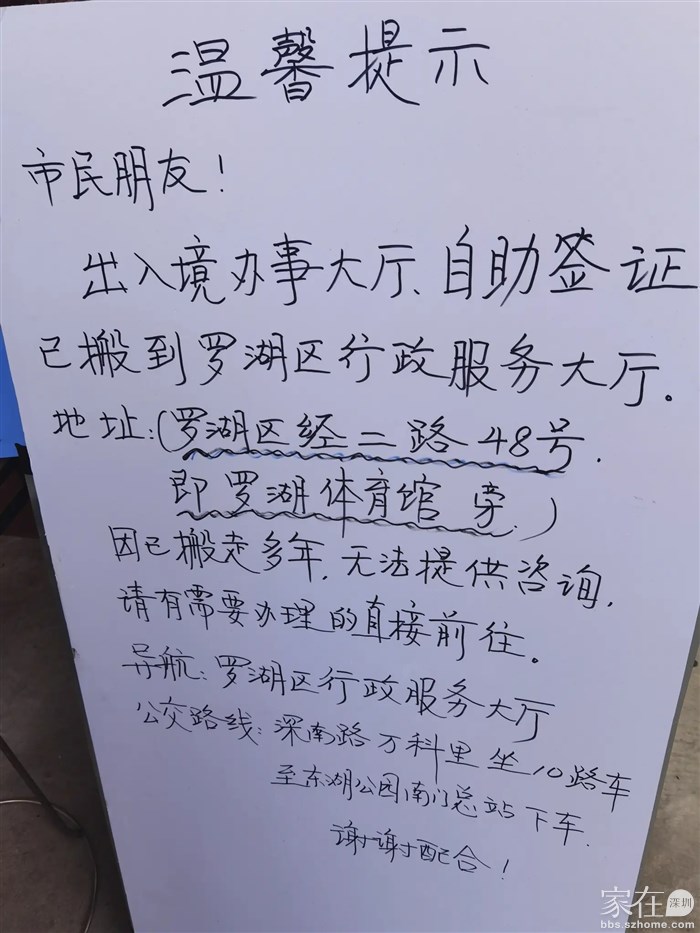 温馨提示
市民朋友！
出入境办事大厅、自助签证
已搬到罗湖区行政服务大厅。
地址:(罗湖区经二路48号.
即罗湖体育馆 旁.)
因已搬走多年,无法提供咨询,
请有需要办理的直接前往。
导航:罗湖区行政服务大厅
公交路线:深南路万科里坐10路车
至东湖公园南门总站下车.
谢谢配合！
家在深圳
bbs.szhome.com